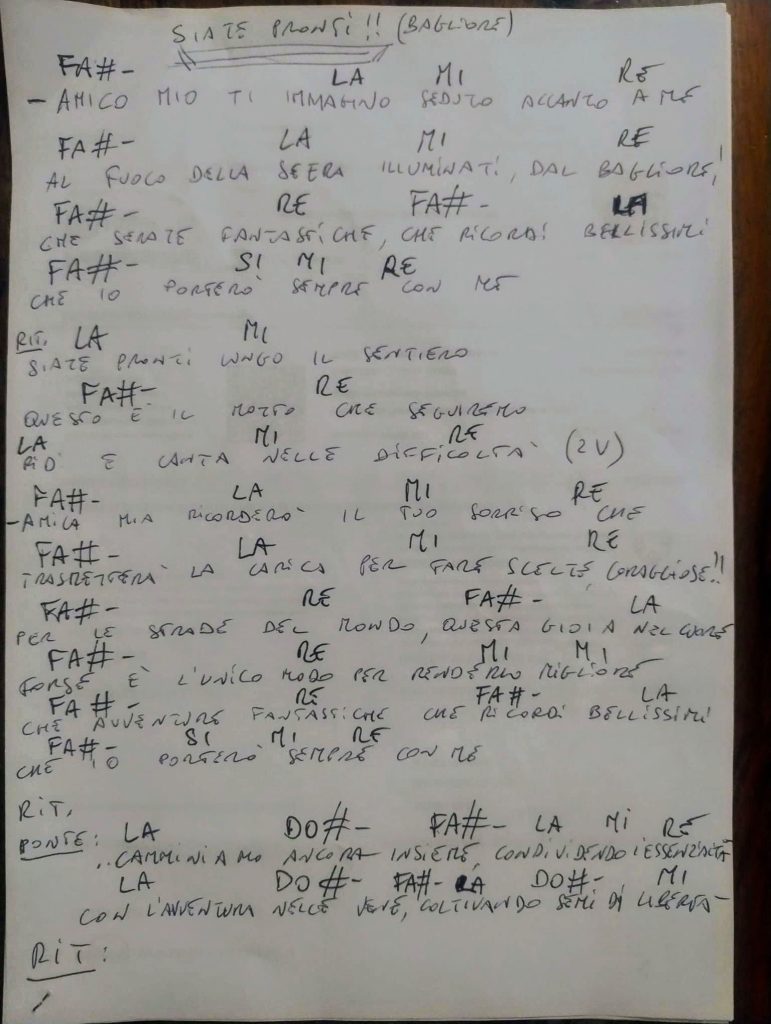 SIATE PRONTI!! (BAGLIORE)
FA#- LA MI RE
- AMICO MIO TI IMMAGINO SEDUTO ACCANTO A ME
FA#- LA MI RE
AL FUOCO DELLA SERA ILLUMINATI, DAL BAGLIORE!
FA#- RE FA#- LA
CHE SERATE FANTASTICHE, CHE RICORDI BELLISSIMI
FA#- SI MI RE
CHE IO PORTERO' SEMPRE CON ME
RIT. LA MI
SIATE PRONTI LUNGO IL SENTIERO
FA#- RE
QUESTO E' IL MOTTO CHE SEGUIREMO
LA MI RE
RIDI E CANTA NELLE DIFFICOLTA' (2V)
FA#- LA MI RE
- AMICA MIA RICORDERO' IL TUO SORRISO CHE
FA#- LA MI RE
TRASMETTERA' LA CARICA PER FARE SCELTE, CORAGGIOSE!!
FA#- RE FA#- LA
PER LE STRADE DEL MONDO, QUESTA GIOIA NEL CUORE
FA#- RE MI MI
FORSE E' L'UNICO MODO PER RENDERLO MIGLIORE
FA#- RE FA#- LA
CHE AVVENTURE FANTASTICHE CHE RICORDI BELLISSIMI
FA#- SI MI RE
CHE IO PORTERO' SEMPRE CON ME
RIT.
PONTE: LA DO#- FA#- LA MI RE
..CAMMINIAMO ANCORA INSIEME, CONDIVIDENDO L'ESSENZIALITÀ
LA DO#- FA#- LA DO#- MI
CON L'AVVENTURA NELLE VENE, COLTIVANDO SEMI DI LIBERTA'
RIT: